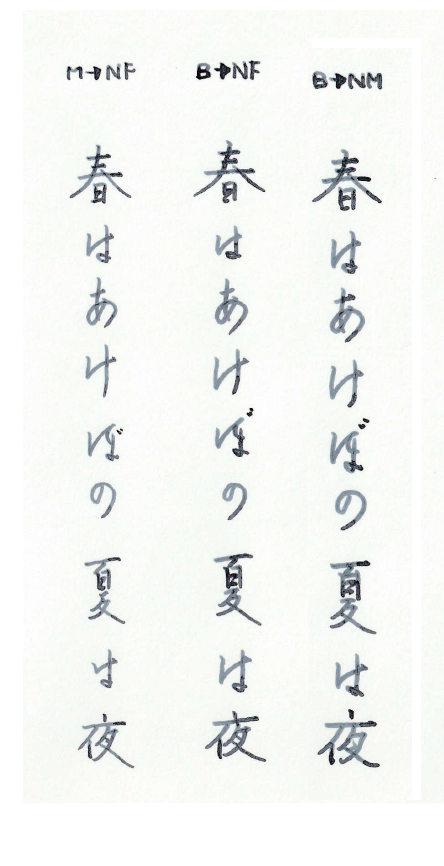 M→NF
春はあけぼの夏は夜
B→NF
春はあけぼの夏は夜
B→NM
春はあけぼの夏は夜